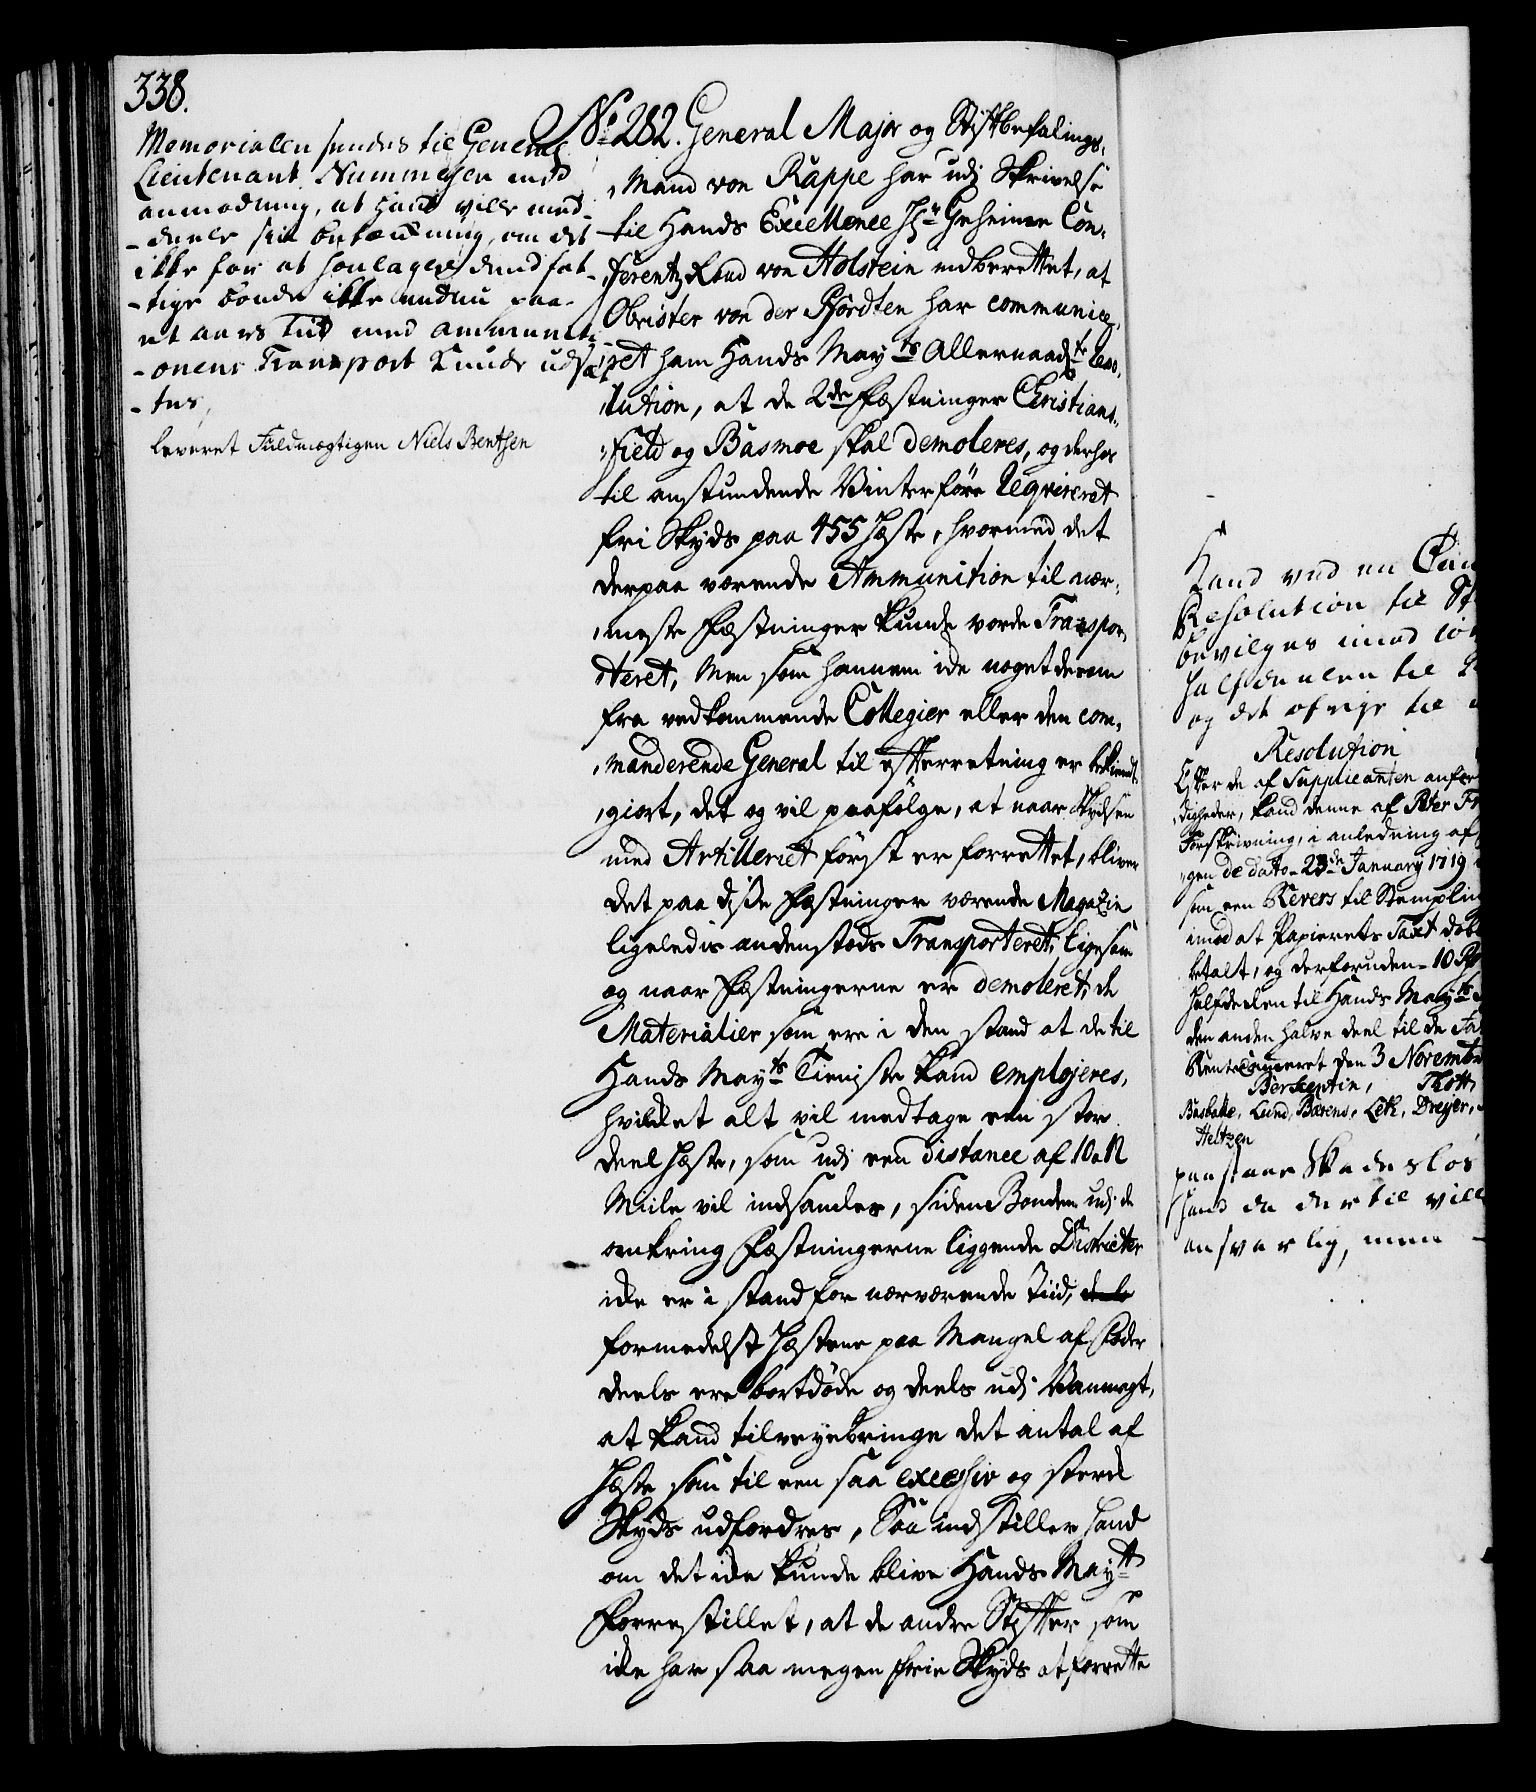 338.
Memorialen sendes til General
Lieutenant Nummesen med
anmodning, at hand ville med-
-deele sin betænkning, om det
ikke for at soulagere dend fat-
-tige bonde ikke endnu paa
et aars Tiid med ammuniti-
-onens Transport kunde udsæt-
-tes,
Leveret Fuldmægtigen Niels Bentsen
No 282. General Major og Stiftbefalings-
Mand von Rappe har udj Skrivelse
til Hands Excellence Hr Geheime Con-
ferentz Raad von Holstein indberettet, at
Obrister von der Pfordten har communice-
ret ham Hands Mayts Allernaadste Reso-
lution, at de 2de Fæstninger Christians-
field og Basmoe skal demoleres, og derhos
til anstundende Vinterføre Reqvireret
fri Skyds paa 455 Heste, hvormed det
derpaa værende Ammunition til nær-
meste Fæstninger kunde vorde Transpor-
teret, Men som hannem icke noget derom
fra vedkommende Collegier eller den com-
manderende General til efterretning er bekiendt-
giort, det og vil paafølge, at naar Skydsen
med Artilleriet først er forrettet, bliver
det paa disse Fæstninger værende Magazin
ligeledis andenstæds Transporteret, ligesom
og naar Fæstningerne er demoleret, de
Materialier som ere i den stand at de til
Hands Mayts Tieniste kand emplojeres,
hvilket alt vil medtage een stor
deel Heste, som udj een distance af 10 a 12
Miile vil indsamles, siden Bonden udj de
omkring Fæstningerne liggende Districter
icke er i stand for nærværende Tiid,
formedelst Hestene paa Mangel af Foder
deels ere bortdøde og deels udj Vanmagt,
at kand tilveyebringe det antal af
Heste som til een saa excessiv og sterck
Skyds udfordres, Saa indstiller hand
om det icke kunde blive Hands Maytt
Forrestillet, at de andre Stifter som
icke har saa megen friie Skyds at forrette
Kand ved en
Resolution til
bevilges imod
halfdeelen til
og det øfrige til
Resolution
Efter de af Supplicanten anfør
digheder, kand denne af Peter
Forskrivning, i anledning af
gen de dato 23de January 1719
som een Revers til Stempling
imod at Papierets Taxt dob
betalt, og derforuden 10 R
halfdeelen til Hands Mayts
den anden halve deel til de
Rentecammeret den 3 Novembr
Berckentin, Thott
Basballe, Lund, Barens, Leth, Dreyer,
Heltzen
paastaar Skadesløs
hand da dertil vill
ansvarlig, men